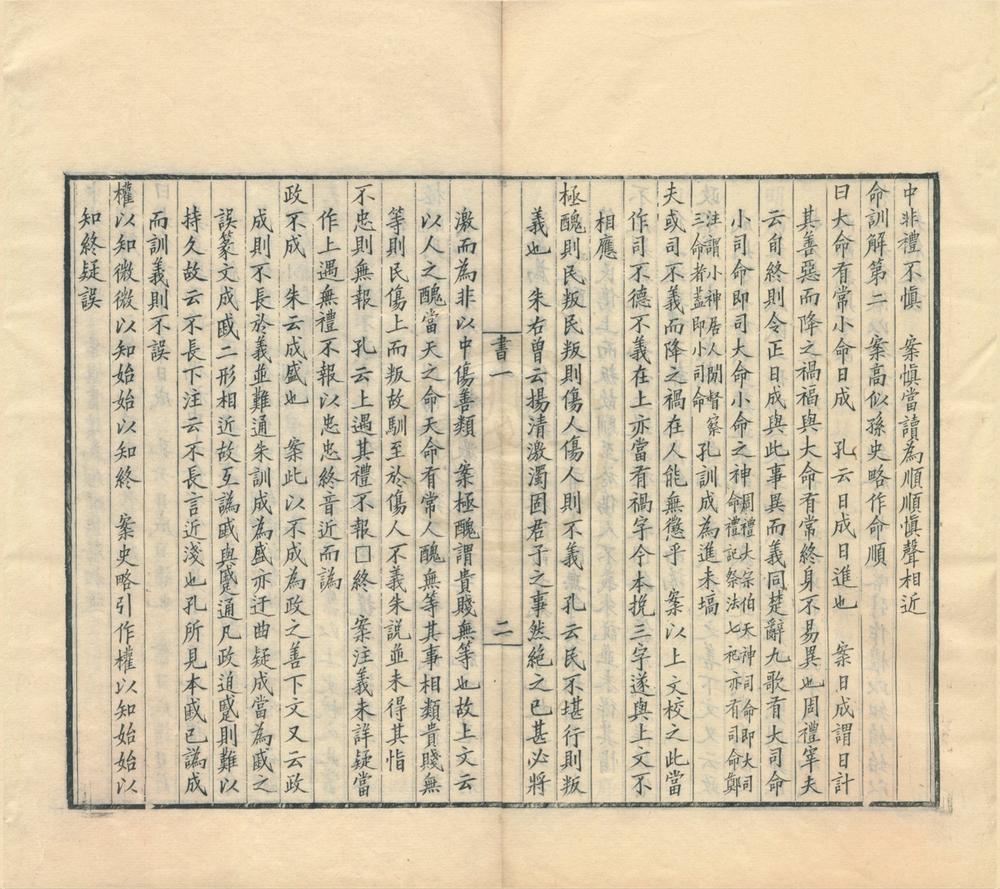 中非禮不慎　案慎當讀為順順慎聲相近
命訓解第二　案高似孫史略作命順
曰大命有常小命日成　孔云日成日進也　案日成謂日計
其善惡而降之禍福與大命有常終身不易異也周禮宰夫
云旬終則令正日成與此事異而義同楚辭九歌有大司命
小司命即司大命小命之神周禮大宗伯天神司命即大司命禮記祭法七祀亦有司命鄭
注謂小神居人閒督察三命者蓋即小司命孔訓成為進未塙
夫或司不義而降之禍在人能無懲乎　案以上文校之此當
作司不德不義在上亦當有禍字今本挩三字遂與上文不
相應
極醜則民叛民叛則傷人傷人則不義　孔云民不堪行則叛
義也　朱右曾云揚清激濁固君子之事然絶之已甚必將
書一
二
激而為非以中傷善類　案極醜謂貴賤無等也故上文云
以人之醜當天之命天命有常人醜無等其事相類貴賤無
等則民傷上而叛故馴至於傷人不義朱說並未得其恉
不忠則無報　孔云上遇其禮不報□終　案注義未詳疑當
作上遇無禮不報以忠忠終音近而譌
政不成　朱云成盛也　案此以不成為政之善下文又云政
成則不長於義並難通朱訓成為盛亦迂曲疑成當為戚之
誤篆文成戚二形相近故互譌戚與蹙通凡政迫蹙則難以
持久故云不長下注云不長言近淺也孔所見本戚已譌成
而訓義則不誤
權以知微微以知始始以知終　案史略引作權以知始始以
知終疑誤